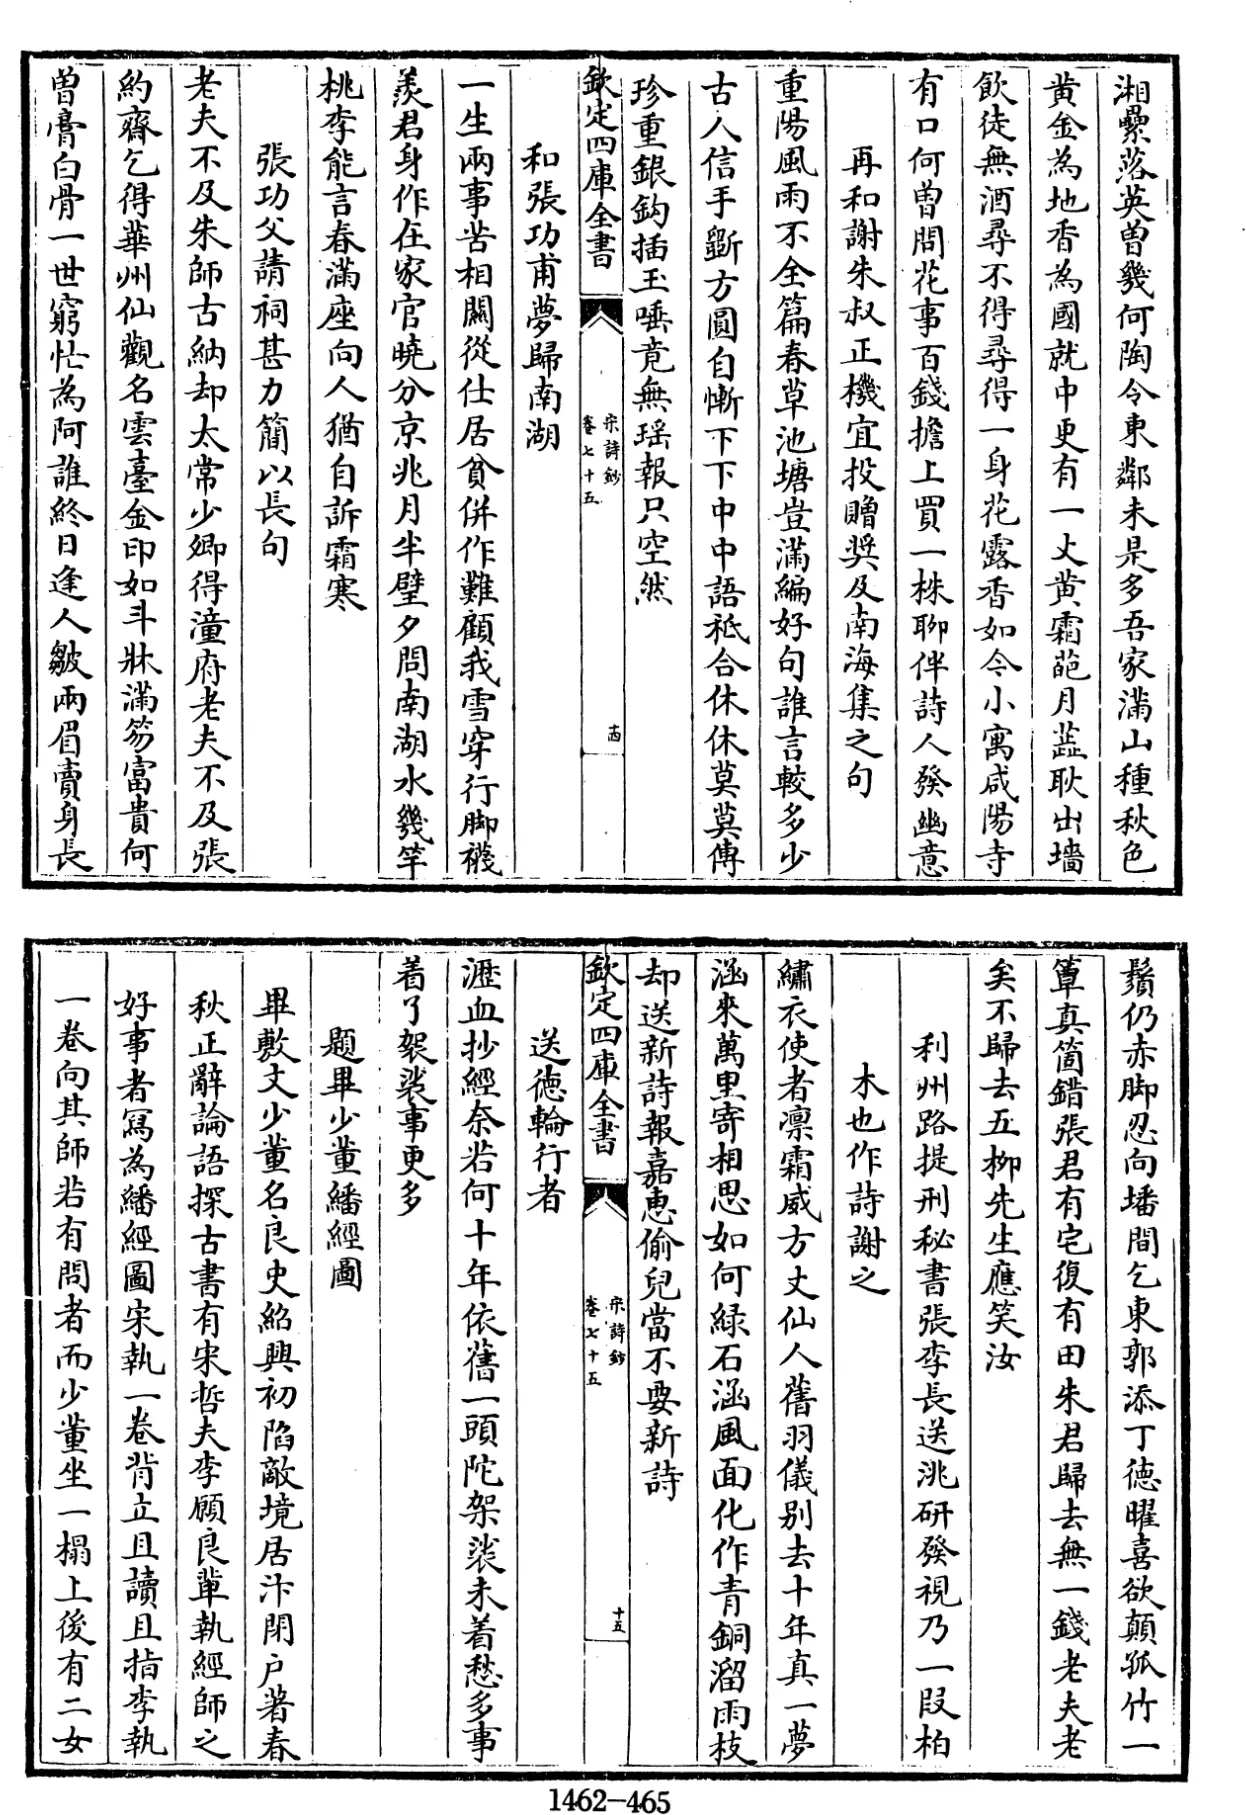 湘纍落英曽幾何陶令東鄰未是多吾家滿山種秋色
黄金為地香為國就中更有一丈黄霜葩月蘂耿出墻
飲徒無酒尋不得尋得一身花露香如今小寓咸陽寺
有口何曽問花事百錢擔上買一株聊伴詩人發幽意
再和謝朱叔正機宜投贈奬及南海集之句
重陽風雨不全篇春草池塘豈滿編好句誰言較多少
古人信手斵方圓自慚下下中中語祗合休休莫莫傳
珍重銀鈎插玉唾竟無瑶報只空然
欽定四庫全書
宋詩鈔
卷七十五
十四
和張功甫夢歸南湖
一生兩事苦相關從仕居貧併作難顧我雪穿行脚襪
羨君身作在家官曉分京兆月半壁夕問南湖水幾竿
桃李能言春滿座向人猶自訴霜寒
張功父請祠甚力簡以長句
老夫不及朱師古納却太常少卿得潼府老夫不及張
約齋乞得華州仙觀名雲臺金印如斗牀滿笏富貴何
曽膏白骨一世窮忙為阿誰終日逢人皺兩眉賣身長
鬚仍赤脚忍向墦間乞東郭添丁德曜喜欲顛孤竹一
簞真箇錯張君有宅復有田朱君歸去無一錢老夫老
矣不歸去五柳先生應笑汝
利州路提刑秘書張季長送洮研發視乃一段柏
木也作詩謝之
繡衣使者凛霜威方丈仙人舊羽儀别去十年真一夢
涵來萬里寄相思如何緑石涵風面化作青銅溜雨枝
却送新詩報嘉惠偷兒當不要新詩
欽定四庫全書
宋詩鈔
卷七十五
十五
送德輪行者
瀝血抄經奈若何十年依舊一頭陀袈裟未着愁多事
着了袈裟事更多
題畢少董繙經圖
畢敷文少董名良史紹興初陷敵境居汴閉户著春
秋正辭論語探古書有宋哲夫李願良輩執經師之
好事者冩為繙經圖宋執一卷背立且讀且指李執
一卷向其師若有問者而少董坐一榻上後有二女
1462-465